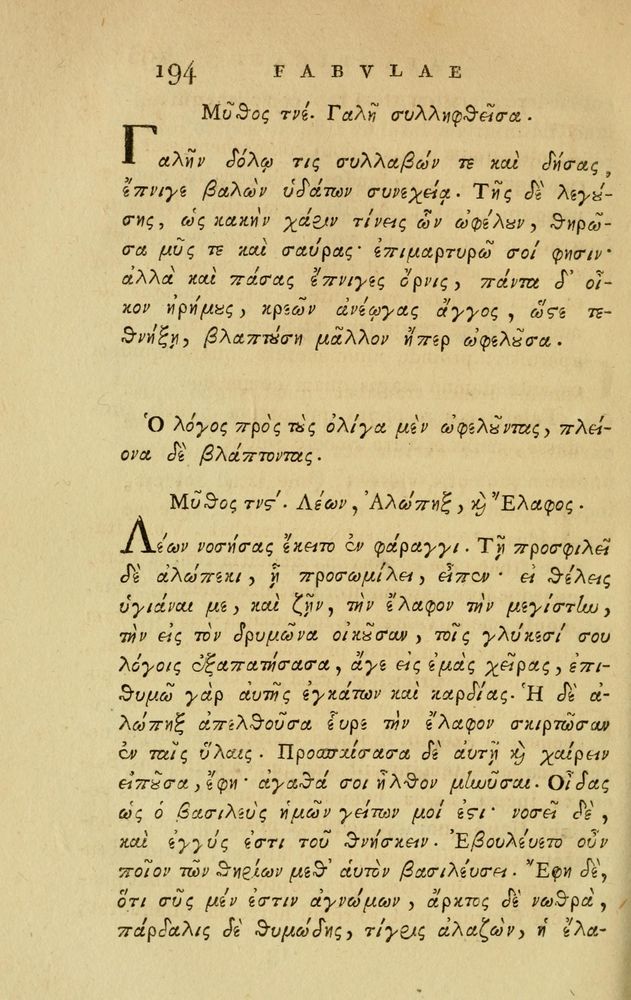 194 FABVLAE
Μῦθος τνέ. Γαλῆ συλληφθεῖσα.
Γαλῆν δόλῳ τις συλλαβών τε καὶ δήσας,
ἔπνιγε βαλὼν ὑδάτων συνεχείᾳ. Τῆς δὲ λεγού-
σης, ὡς κακὴν χάριν τίνεις ὧν ὠφέλουν, θηρῶ-
σα μῦς τε καὶ σαύρας· ἐπιμαρτυρῶ σοί φησιν·
ἀλλὰ καὶ πάσας ἔπνιγες ὄρνις, πάντα δ' οἶ-
κον ἠρήμους, κρεῶν ἀνέῳγας ἄγγος, ὥστε τε-
θνήξῃ, βλαπτούση μᾶλλον ἤπερ ὠφελοῦσα.
Ὁ λόγος πρὸς τοὺς ὀλίγα μὲν ὠφελοῦντας, πλεί-
ονα δὲ βλάπτοντας.
Μῦθος τνϛ'. Λέων, Ἀλώπηξ, καὶ Ἔλαφος.
Λέων νοσήσας ἔκειτο ἐν φάραγγι. Τῇ προσφιλεῖ
δὲ ἀλώπεκι, ᾗ προσωμίλει, εἶπεν· εἰ θέλεις
ὑγιάναι με, καὶ ζῇν, τὴν ἔλαφον τὴν μεγίστην,
τὴν εἰς τὸν δρυμῶνα οἰκοῦσαν, τοῖς γλύκεσί σου
λόγοις ἐξαπατήσασα, ἄγε εἰς ἐμὰς χεῖρας, ἐπι-
θυμῶ γάρ αὐτῆς ἐγκάτων καὶ καρδίας. Ἡ δὲ ἀ-
λώπηξ ἀπελθοῦσα εὗρε τὴν ἔλαφον σκιρτῶσαν
ἐν ταῖς ὕλαις. Προσπαίσασα δὲ αὐτῇ καὶ χαίρειν
εἰποῦσα, ἔφη· ἀγαθά σοι ἦλθον μηνῦσαι. Οἶδας
ὡς ὁ βασιλεὺς ἡμῶν γείτων μοί ἐστι· νοσεῖ δὲ,
καὶ ἐγγύς ἐστι τοῦ θνήσκειν. Ἐβουλέυετο οὖν
ποῖον τῶν θηρίων μεθ' αὑτὸν βασιλεύσει. Ἔφη δὲ,
ὅτι σῦς μέν ἐστιν ἀγνώμων, ἄρκτος δὲ νωθρὰ,
πάρδαλις δὲ θυμώδης, τίγρις ἀλαζών, ἡ ἔλα-